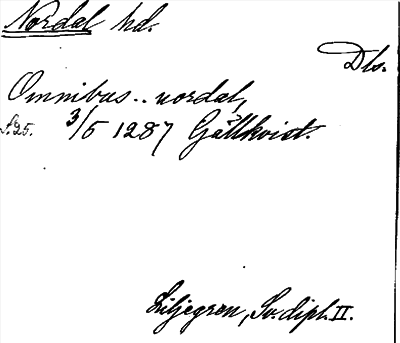 Nordal hd.
Dls.
Omnibus .. nordal,
s. 25. 3/5 1287 Gällkvist.
Liljegren, Sv. dipl. II.